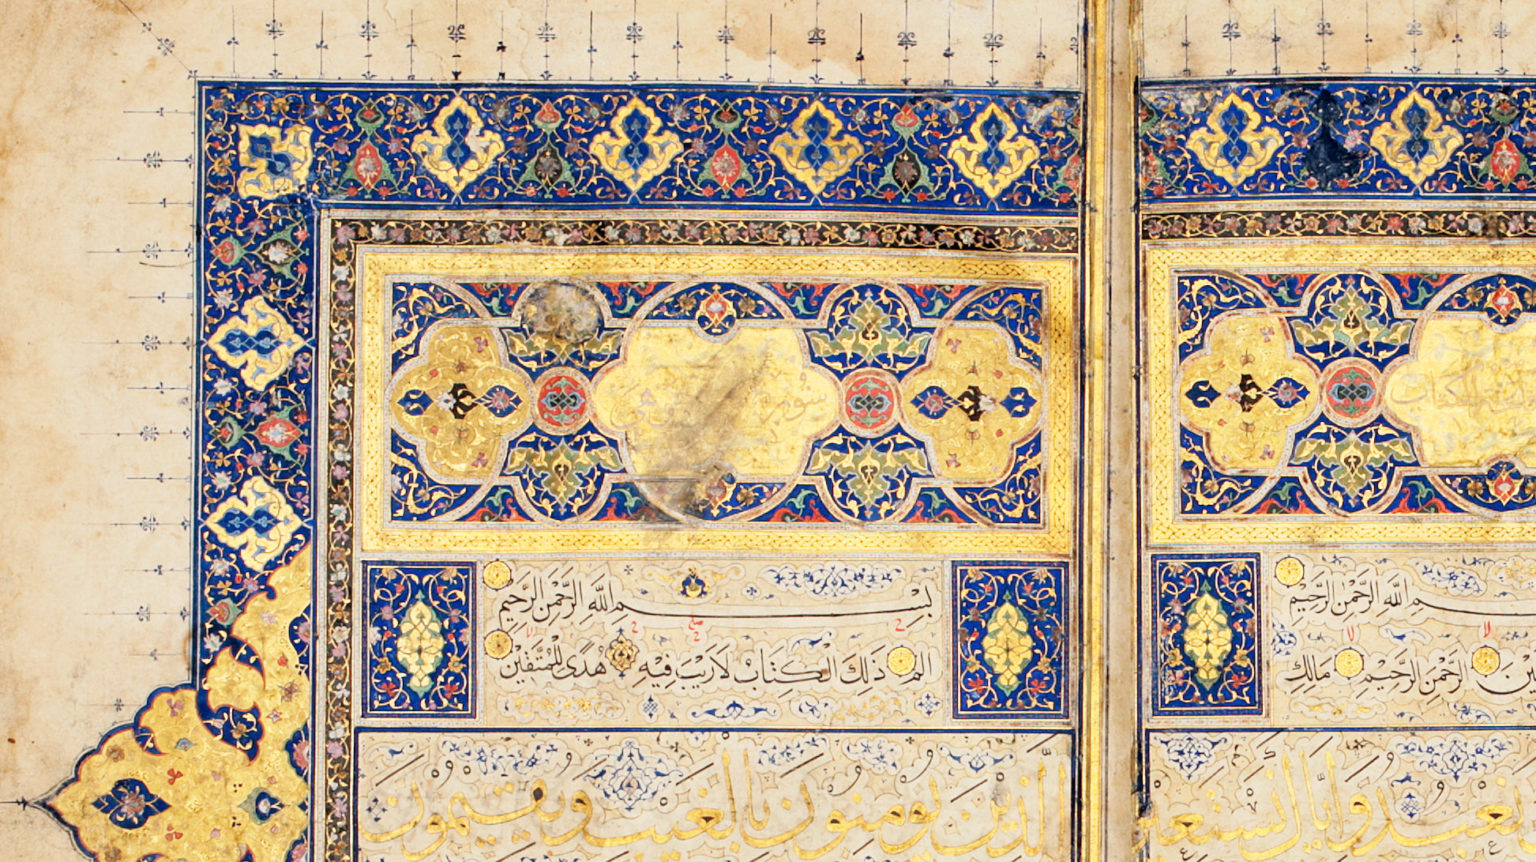 سورة
بِسْمِ اللَّهِ الرَّحْمَنِ الرَّحِيمِ
الم ذَلِكَ الْكِتَابُ لَا رَيْبَ فِيهِ هُدًى لِلْمُتَّقِينَ
الَّذِينَ يُؤْمِنُونَ بِالْغَيْبِ وَيُقِيمُونَ
اللَّهِ الرَّحْمَنِ الرَّحِيمِ
الرَّحْمَنِ الرَّحِيمِ مَالِكِ
نَعْبُدُ وَإِيَّاكَ نَسْتَعِينُ